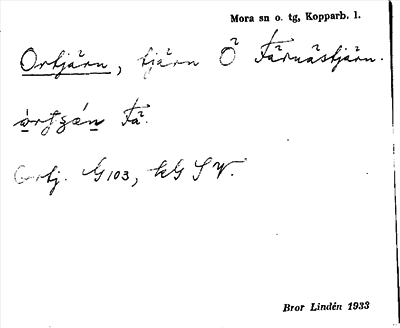 Mora sn o. tg, Kopparb. l.
Ortjärn, tjärn Ö Färnästjärn.
Fä.
G103, kG SV.
Bror Lindén 1933